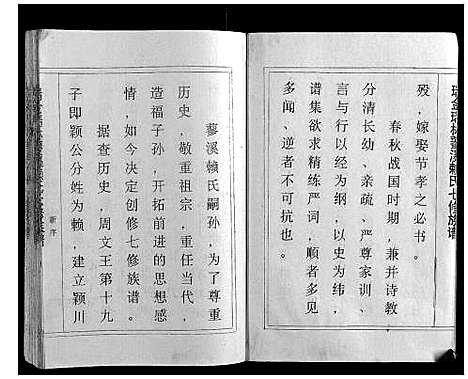 瑞金瑞林蓼溪赖氏七修族谱
殁，嫁娶节孝之必书。
春秋战国时期，兼并诗教
分清长幼、亲疏、严尊家训、
言与行以经为纲，以史为纬，
谱集欲求精练严词，顺者多见
多闻、逆者不可抗也。
蓼溪赖氏嗣孙，为了尊重
历史，敬重祖宗，重任当代，
造福子孙，开拓前进的思想感
情，如今决定创修七修族谱。
据查历史，周文王第十九
子即颖公分姓为赖，建立颖川
新序